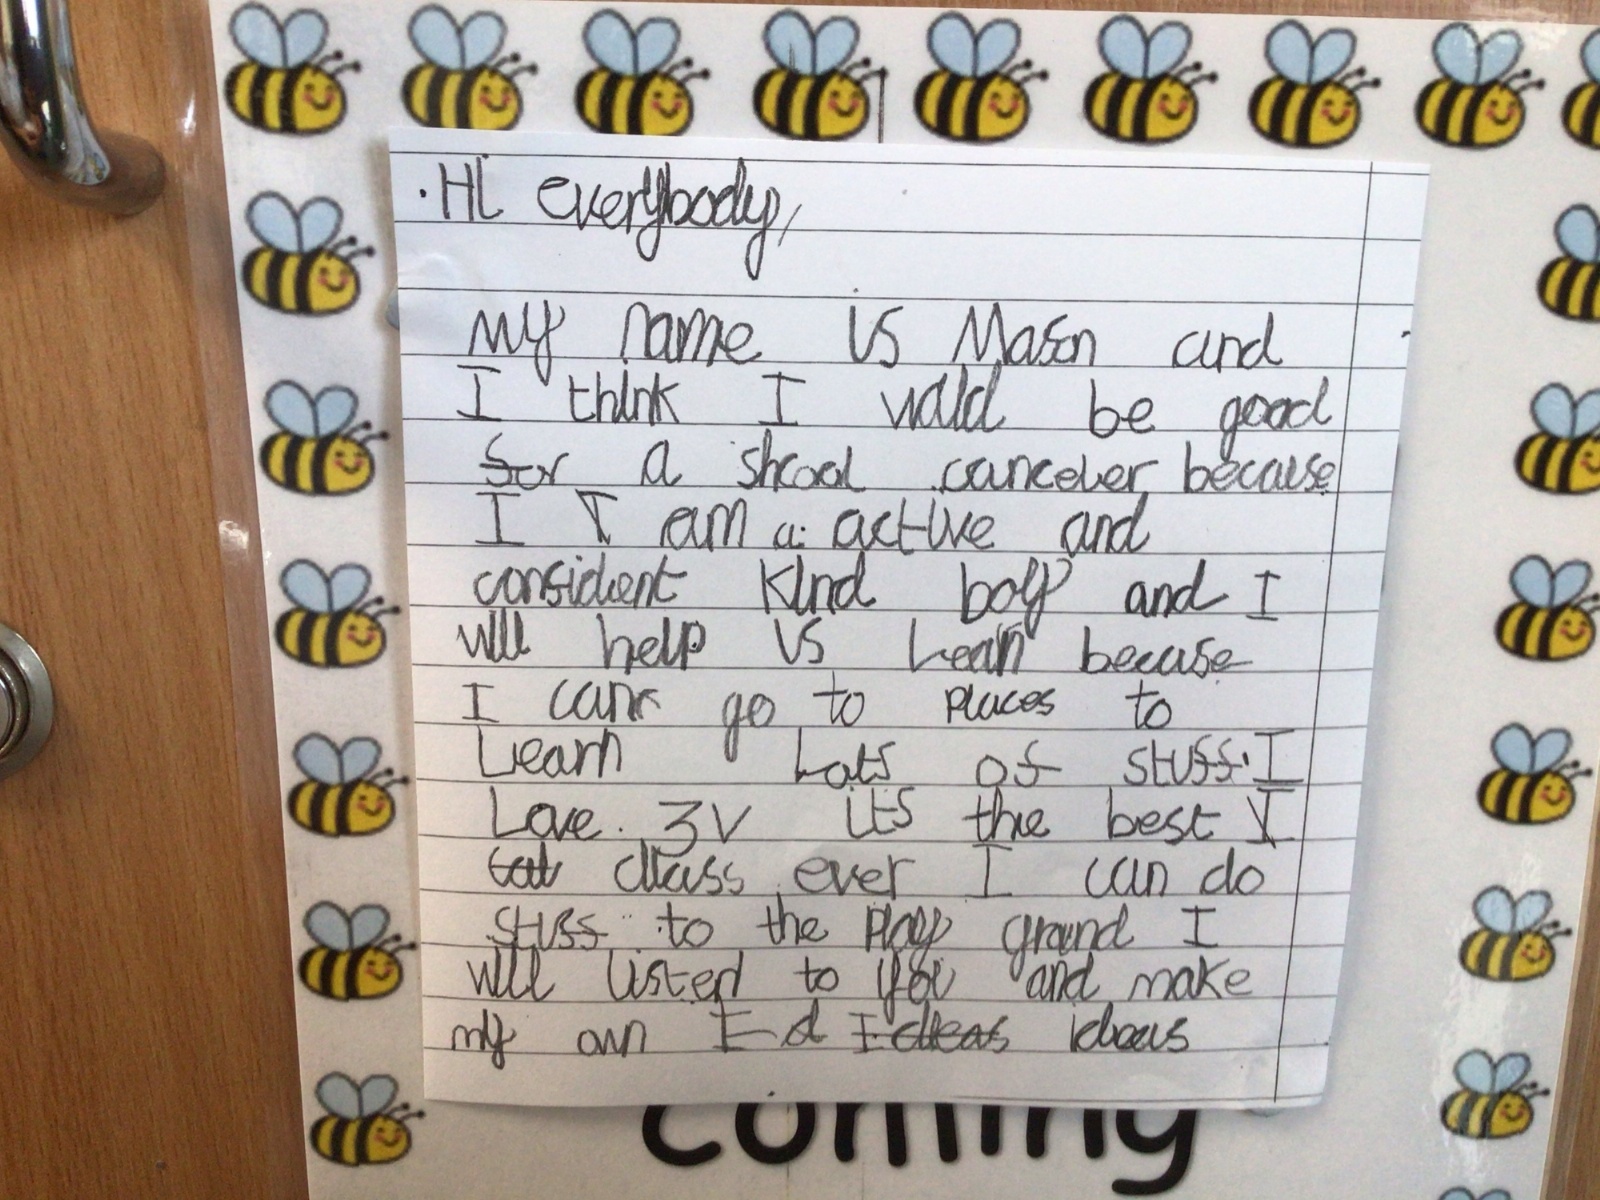 Hi everybody,
My name is Mason and
I think I wold be good
for a shcool canceler because
I I am a active and
considient Kind boy and I
will help us Learn becuse
I can go to places to
Learn Lots of stuff. I
Love 3V its the best I
class ever I can do
stuff to the play ground I
will listen to you and make
my own I d Ideas ideas
coming